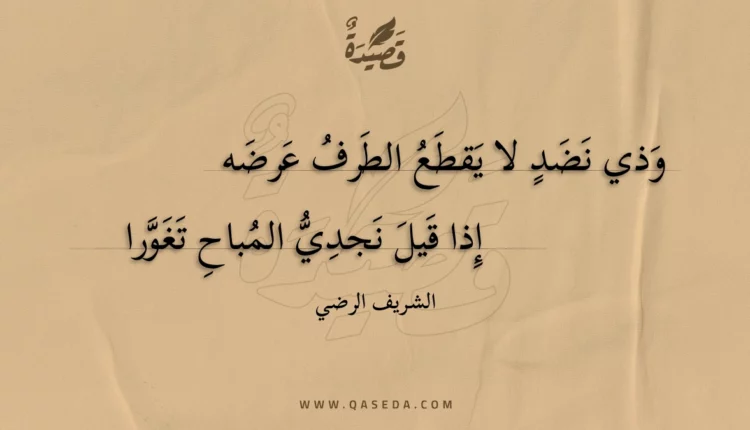 قَصِيدَةٌ
وَذي نَضَدٍ لا يَقطَعُ الطَرفُ عَرضَه
إِذا قَيلَ نَجدِيُّ المُباحِ تَغَوَّرا
الشريف الرضي
WWW.QASEDA.COM